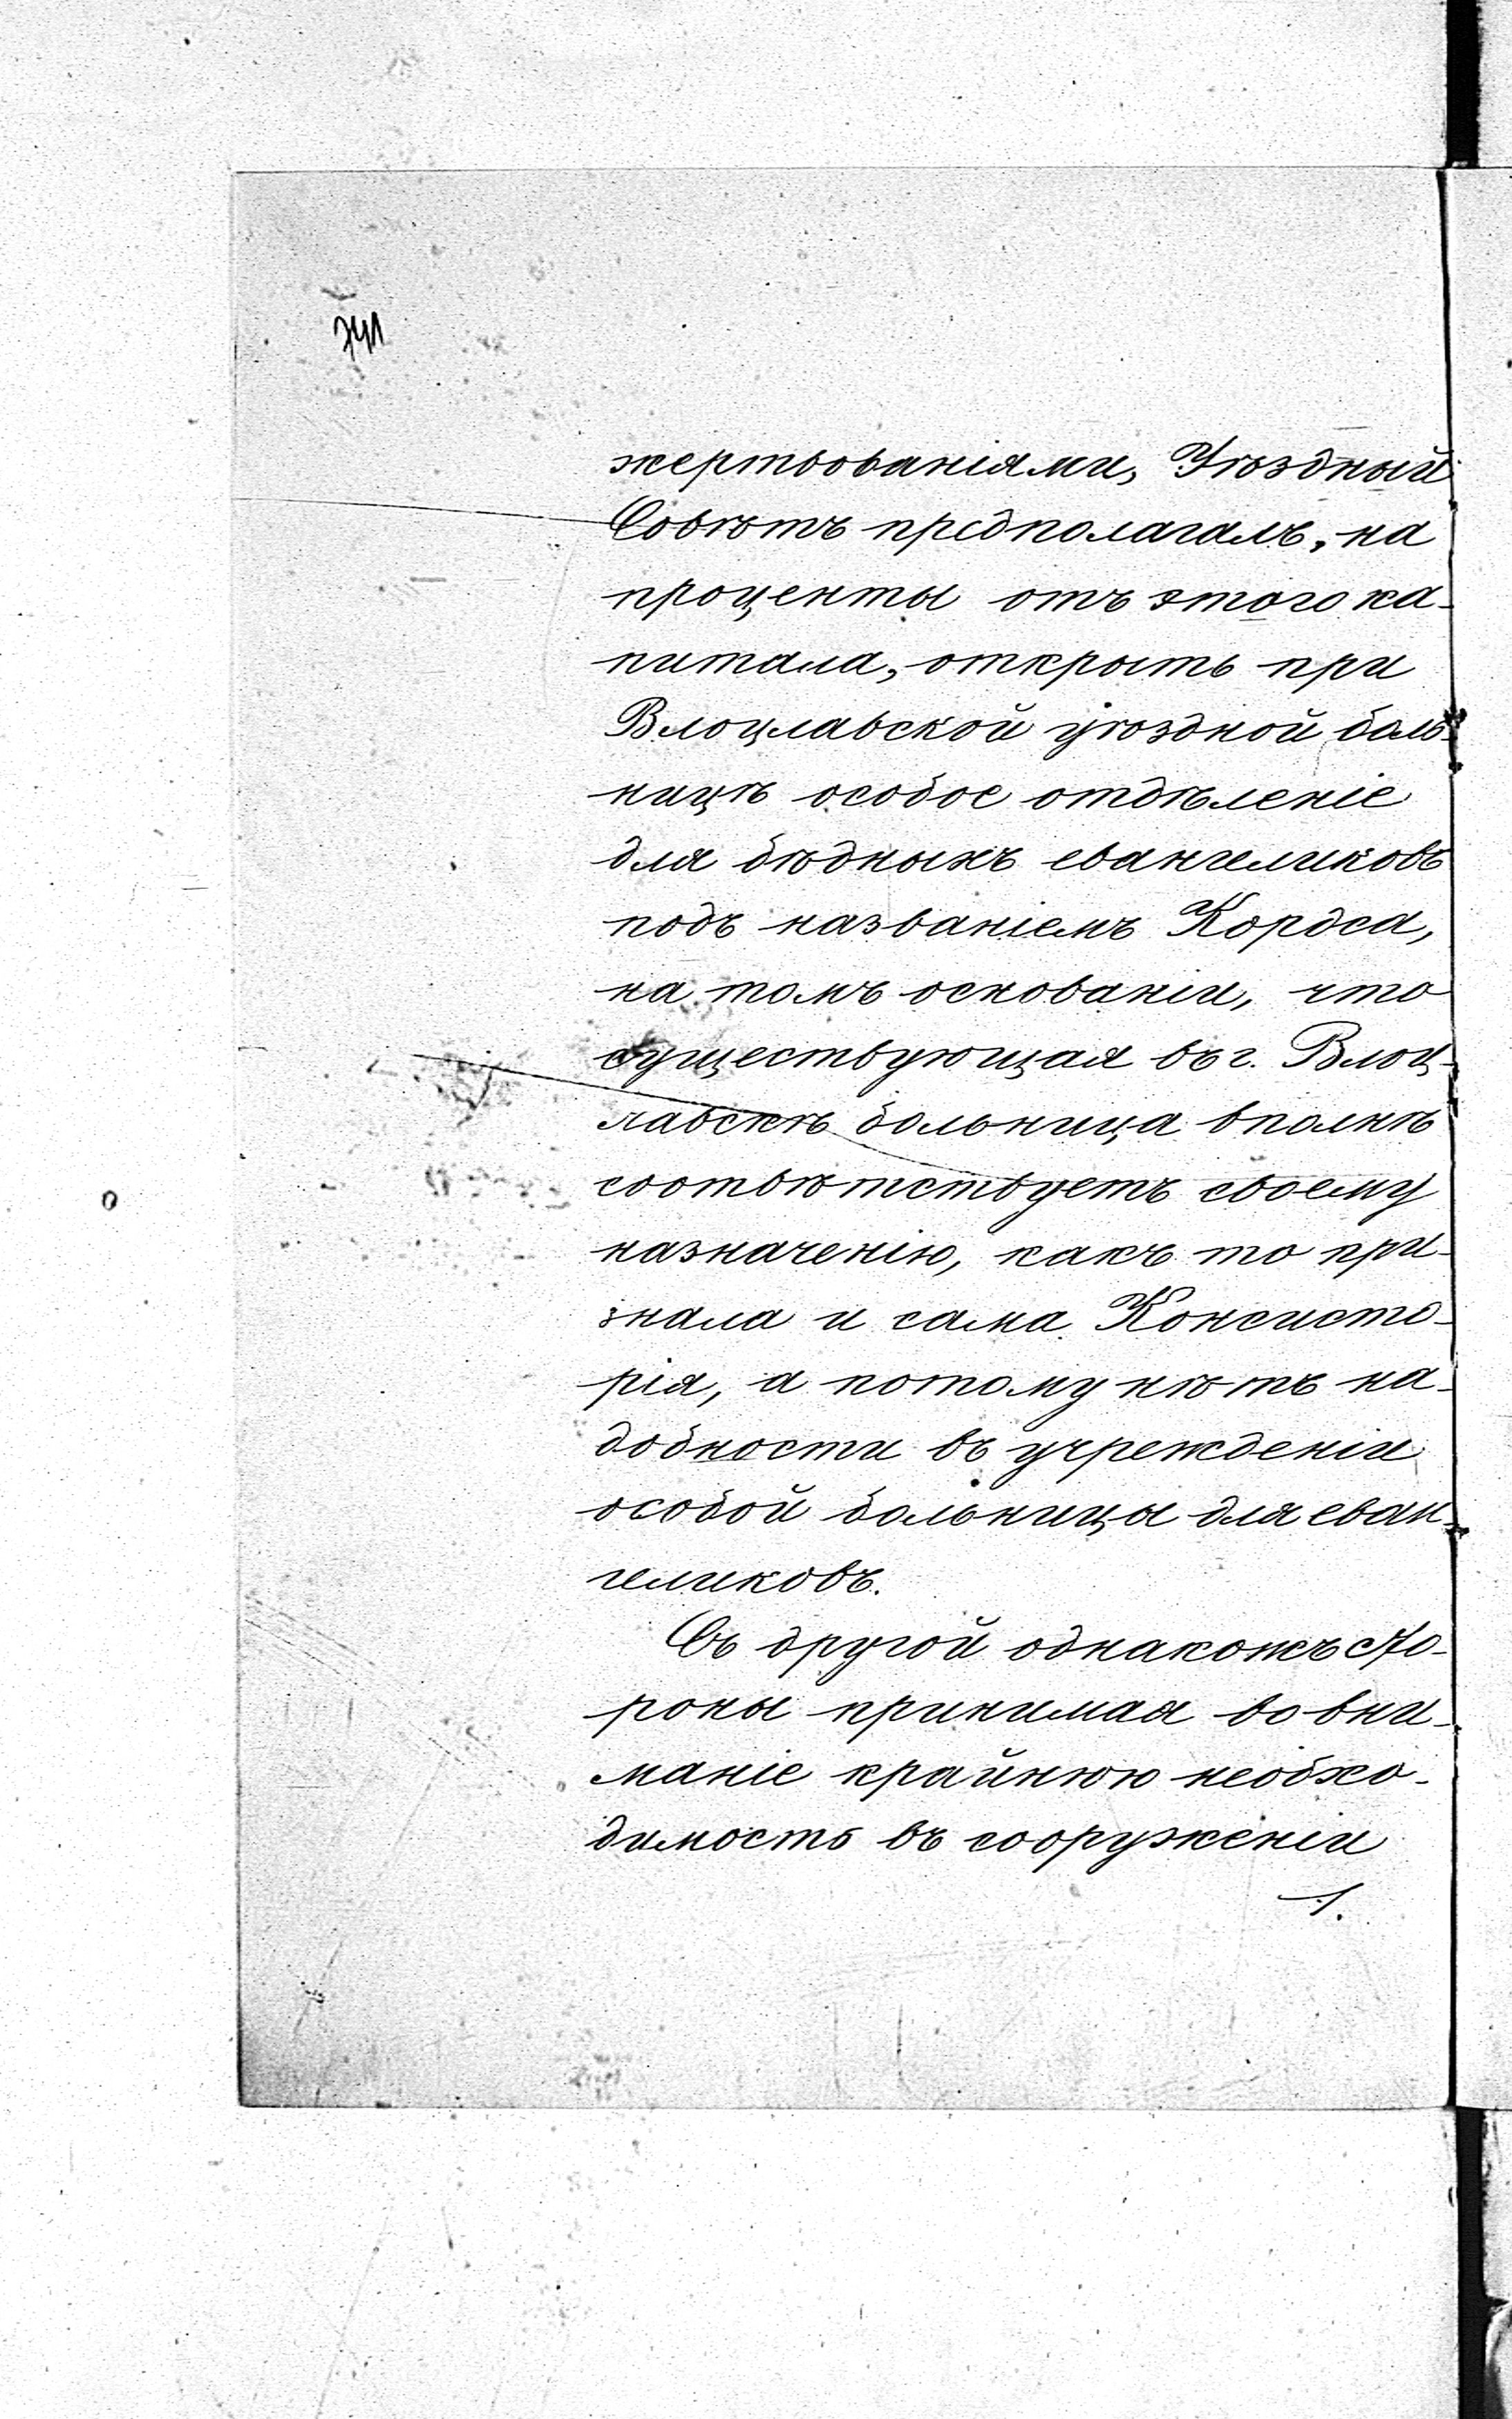 жертвованіями, Уѣздный
Совѣтъ предполагалъ, на
проценты отъ этого ка-
питала, открыть при
Влоцлавской уѣздной боль-
ницѣ особое отдѣленіе
для бѣдныхъ евангеликовъ
подъ названіемъ Кордса,
на томъ основаніи, что
существующая въ г. Влоц-
лавскѣ больница вполнѣ
соотвѣтствуетъ своему
назначенію, какъ то при-
знала и сама Консисто-
рія, а потому нѣтъ на-
добности въ учрежденіи
особой больницы для еван-
геликовъ.
Съ другой однакожъ сто-
роны принимая во вни-
маніе крайнюю необхо-
димость въ сооруженіи